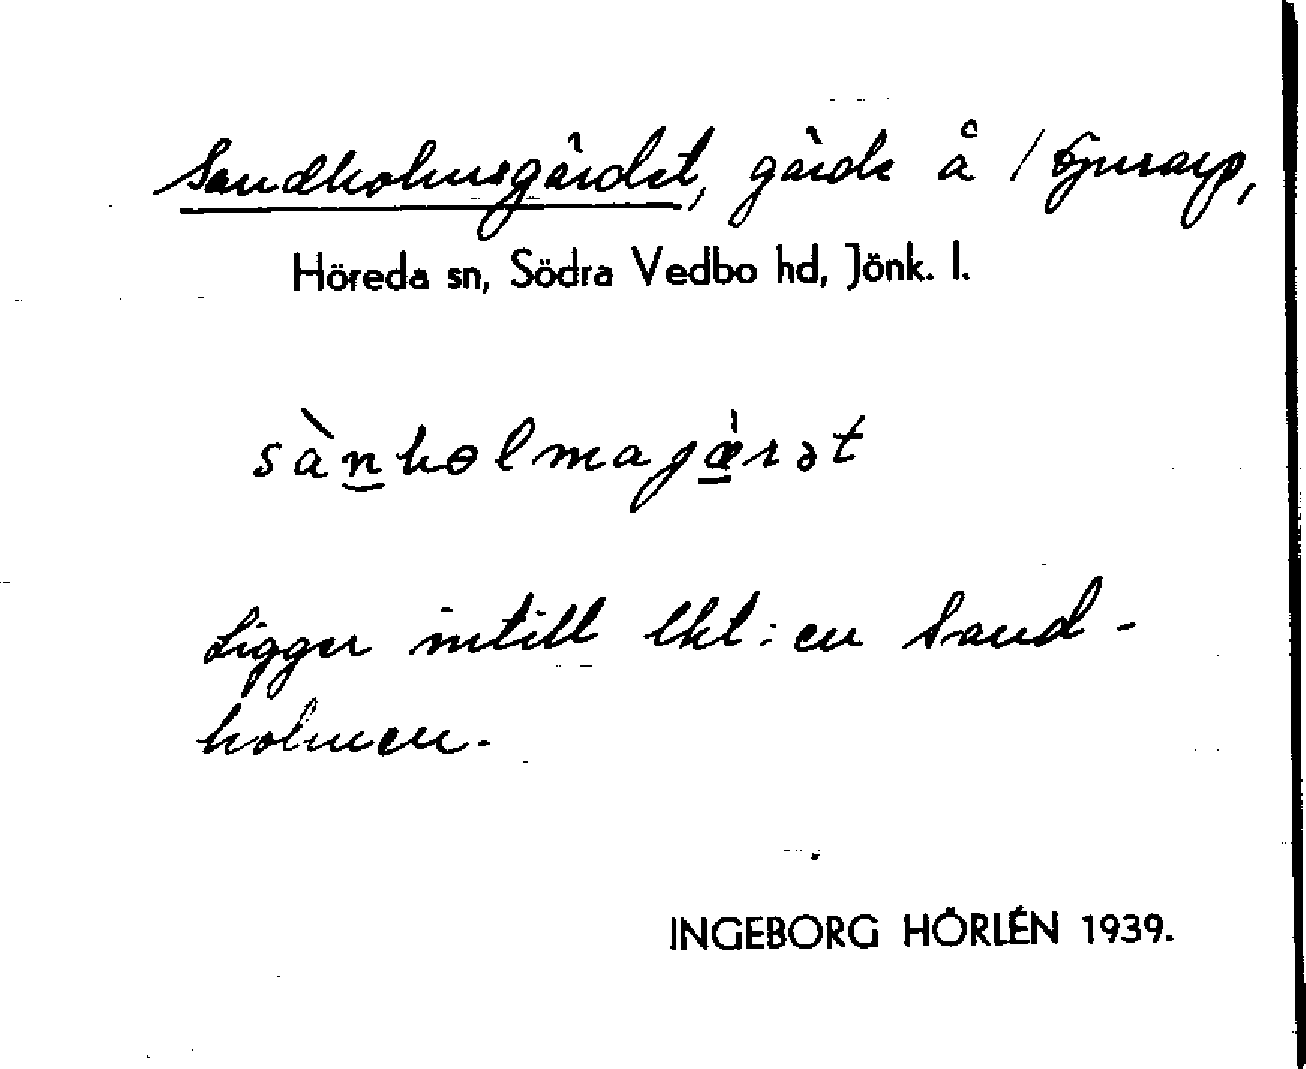 Sandholmsgärdet, gärde å
Höreda sn, Södra Vedbo hd, Jönk. l.
sànholmajæ̀rət
Ligger intill lkt:en Sand-
holmen.
INGEBORG HÖRLÉN 1939.